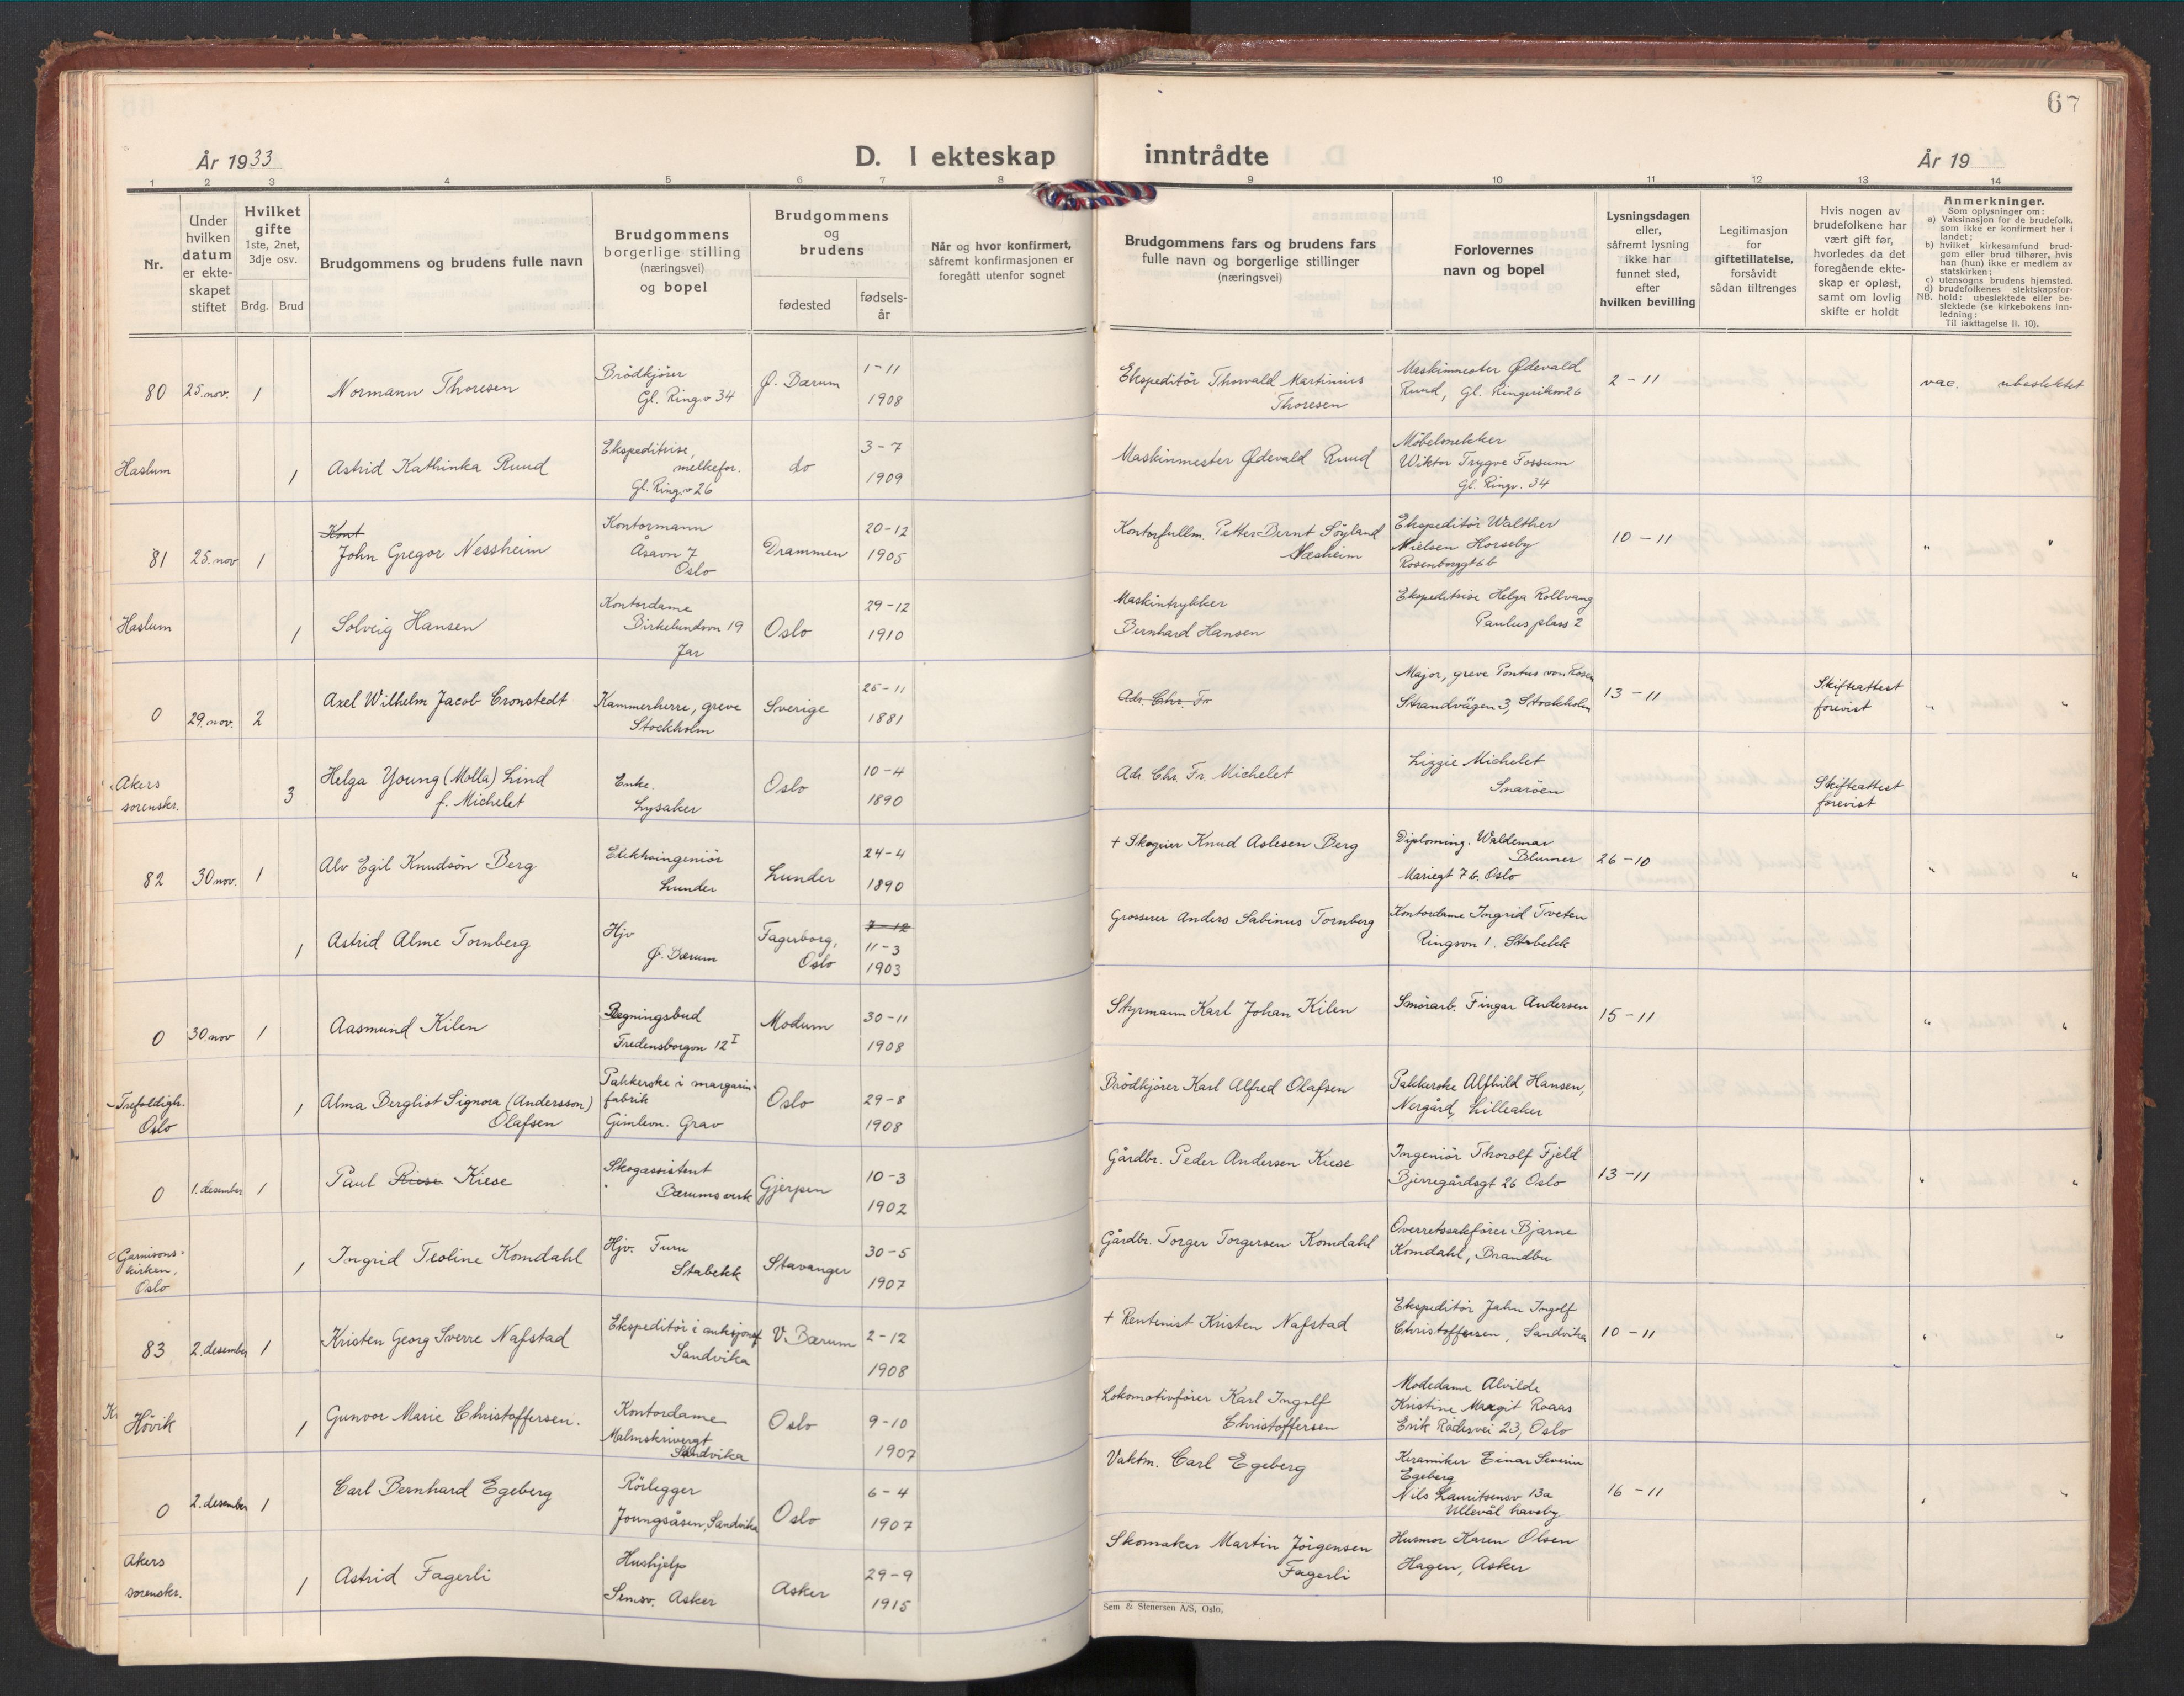 67
År 1933
D. I ekteskap
inntrådte
År 19
1 2 3 4 5 6 7 8 9 10 11 12 13 14
Nr.
Under hvilken datum er ekteskapet stiftet
Hvilket gifte
1ste, 2net, 3dje osv.
Brdg. Brud
Brudgommens og brudens fulle navn
Brudgommens borgerlige stilling (næringsvei) og bopel
Brudgommens og brudens
fødested
fødsels-år
Når og hvor konfirmert, såfremt konfirmasjonen er foregått utenfor sognet
Brudgommens fars og brudens fars fulle navn og borgerlige stillinger (næringsvei)
Forlovernes navn og bopel
Lysningsdagen eller, såfremt lysning ikke har funnet sted, efter hvilken bevilling
Legitimasjon for giftetillatelse, forsåvidt sådan tiltrenges
Hvis nogen av brudefolkene har vært gift før, hvorledes da det foregående ekteskap er opløst, samt om lovlig skifte er holdt
Anmerkninger.
Som oplysninger om:
a) Vaksinasjon for de brudefolk, som ikke er konfirmert her i landet;
b) hvilket kirkesamfund brudgom eller brud tilhører, hvis han (hun) ikke er medlem av statskirken;
c) utensogns brudens hjemsted.
d) brudefolkenes slektskapsforhold: ubeslektede eller beslektede (se kirkebokens innledning:
NB.
Til iakttagelse II. 10).
80 25. nov. 1 Normann Thoresen Brödkjörer Gl. Ringv 34 Ø. Bærum 1-11 1908 Ekspeditör Thorvald Martinius Thoresen Maskinmester Ødevald Ruud, Gl. Ringerikev 26 2-11 vac. ubeslektet
Haslum 1 Astrid Kathinka Ruud Ekspeditrise, melkefor. Gl. Ringv 26 do 3-7 1909 Maskinmester Ødevald Ruud Möbelsnekker Wiktor Trygve Fossum Gl. Ringv. 34
81 25. nov 1 Kont John Gregor Nessheim Kontormann Åsavn 7 Oslo Drammen 20-12 1905 Kontorfullm. Petter Bernt Söyland Næsheim Ekspeditör Walther Nielsen Horseby Rosenborggt 6b 10-11 " "
Haslum 1 Solveig Hansen Kontordame Birkelundvn 19 Jar Oslo 29-12 1910 Maskintrykker Bernhard Hansen Ekspeditrise Helga Rollvang Paulus plass 2
0 29. nov. 2 Axel Wilhelm Jacob Cronstedt Kammerherre, greve Stockholm Sverige 25-11 1881 Ad. Chr. Fr Major, greve Pontus von Rosen Strandvägen 3, Stockholm 13-11 Skifteattest forevist " "
Akers sorenskr. 3 Helga Young (Molla) Lind f. Michelet Enke. Lysaker Oslo 10-4 1890 Ad. Chr. Fr. Michelet Liggie Michelet Snaröen Skifteattest forevist
82 30 nov. 1 Alv Egil Knudsön Berg Elektroingeniör Lunder Lunder 24-4 1890 + Skogeier Knud Aslesen Berg Diploming. Waldemar Blumer Mariegt 7 b. Oslo 26-10 " "
1 Astrid Alme Tornberg Hjv Ø. Bærum Fagerborg, Oslo 7-12 11-3 1903 Grosserer Anders Sabinus Tornberg Kontordame Ingrid Tveten Ringvn 1. Stabekk
0 30. nov 1 Aasmund Kilen Regningsbud Fredensborgvn 12 I Modum 30-11 1908 Styrmann Karl Johan Kilen Smörarb. Fingar Andersen 15-11 " "
Trefoldigh. Oslo 1 Alma Bergliot Signora (Andersson) Olafsen Pakkerske i margarin-fabrik Gimlevn. Grav Oslo 29-8 1908 Brödkjörer Karl Alfred Olafsen Pakkerske Alfhild Hansen, Nergård, Lilleaker
0 1. desember 1 Paul Riese Kiese Skogassistent Bærums verk Gjerpen 10-3 1902 Gårdbr. Peder Andersen Kiese Ingeniör Thorolf Fjeld Bjerregårdsgt 26 Oslo 13-11 " "
Garnisons-kirken, Oslo 1 Ingrid Teoline Komdahl Hjv. Furu Stabekk Stavanger 30-5 1907 Gårdbr. Torger Torgersen Komdahl Overretssakförer Bjarne Komdahl, Brandbu
83 2. desember 1 Kristen Georg Sverre Nafstad Ekspeditör i auksjonsf Sandvika V. Bærum 2-12 1908 + Rentenist Kristen Nafstad Ekspeditör Jahn Ingolf Christoffersen, Sandvika 10-11 " "
Hövik 1 Gunvor Marie Christoffersen. Kontordame Malmskrivergt Sandvika Oslo 9-10 1907 Lokomotivförer Karl Ingolf Christoffersen Modedame Alvilde Kristine Margit Roaas Erik Rådesvei 23, Oslo
0 2. desember 1 Carl Bernhard Egeberg Rörlegger Joungsåsen, Sandvika Oslo 6-4 1907 Vaktm. Carl Egeberg Keramiker Einar Severin Egeberg Nils Lauritsensv 13a Ullevål haveby 16-11 " "
Akers sorenskr. 1 Astrid Fagerli Hushjelp Semsv. Asker Asker 29-9 1915 Skomaker Martin Jörgensen Fagerli Husmor Karen Olsen Hagen, Asker
Sem & Stenersen A/S, Oslo.